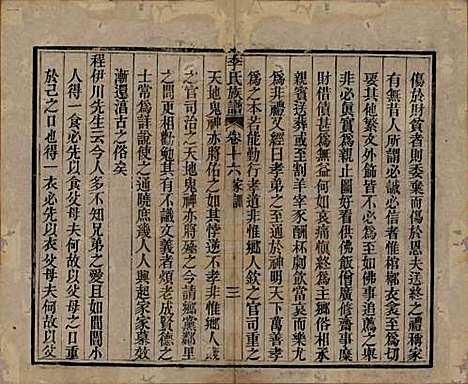 傷於財貧者則委棄而傷於恩夫送終之禮稱家
有無皆人所謂必誠必信者惟棺槨衣衾至為切
要其他繁文外飾皆不必尚至如佛事追薦之典
非必真實為親止圖好看供佛飯僧廣修齋事糜
財借債為無益何如哀痛愼終為主凡我子姓有
親賓送葬或至刲羊宰豕酬杯劇飲當哀而樂尤
為非禮又經曰孝弟之至通於神明天下萬善孝
為之本若能勤行孝道非惟鄉人欽之官司重之
天地鬼神亦將佑之如其悖逆不孝非惟鄉人
之官司治之天地鬼神亦將殛之凡我鄉黨鄰里
之間更相勸勉其有不識文義者煩老成賢德之
士當為詳說使之通曉庶幾人人興起家家慕效
漸還淯古之俗矣
程伊川先生云今人多不知兄弟之愛且如閭閻小
人得一食必先以食父母夫何故以父母之口重
於己之口也得一衣必先以衣父母夫何故以父母
李氏族譜
卷十六
家訓
三